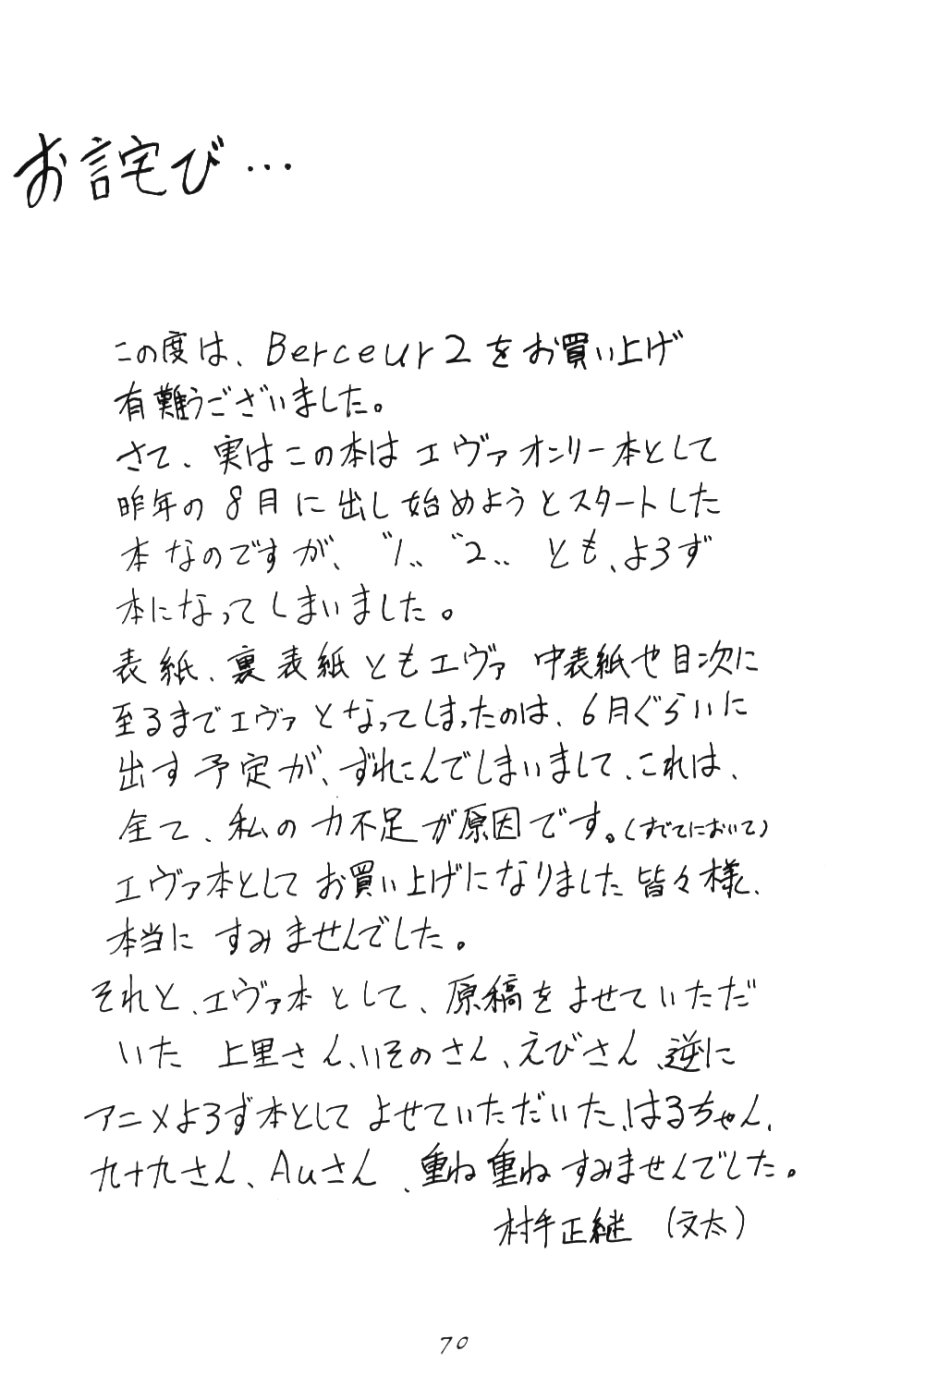 お詫び…
この度は、Berceur2をお買い上げ
有難うございました。
さて、実はこの本はエヴァオンリー本として
昨年の8月に出し始めようとスタートした
本なのですが、〝1〟〝2〟とも、よろず
本になってしまいました。
表紙、裏表紙ともエヴァ 中表紙や目次に
至るまでエヴァとなってしまったのは、6月ぐらいに
出す予定が、ずれこんでしまいまして、これは、
全て、私の力不足が原因です。(すべてにおいて)
エヴァ本としてお買い上げになりました皆々様、
本当に すみませんでした。
それと、エヴァ本として、原稿をよせていただ
いた 上里さん、いそのさん、えびさん、逆に
アニメよろず本としてよせていただいた、はるちゃん、
九十九さん、Auさん、重ね重ねすみませんでした。
村手正継 (文太)
70